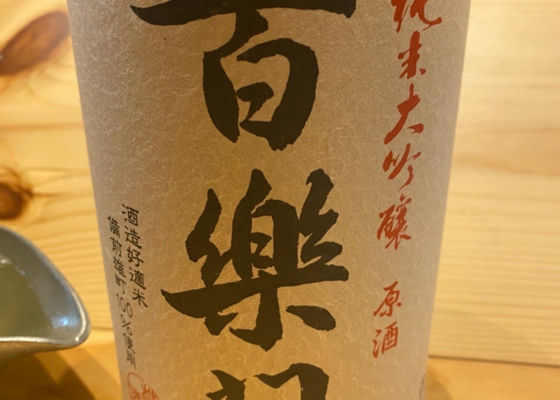 純米大吟醸 原酒
百樂
酒造好適米
備前雄町100%使用